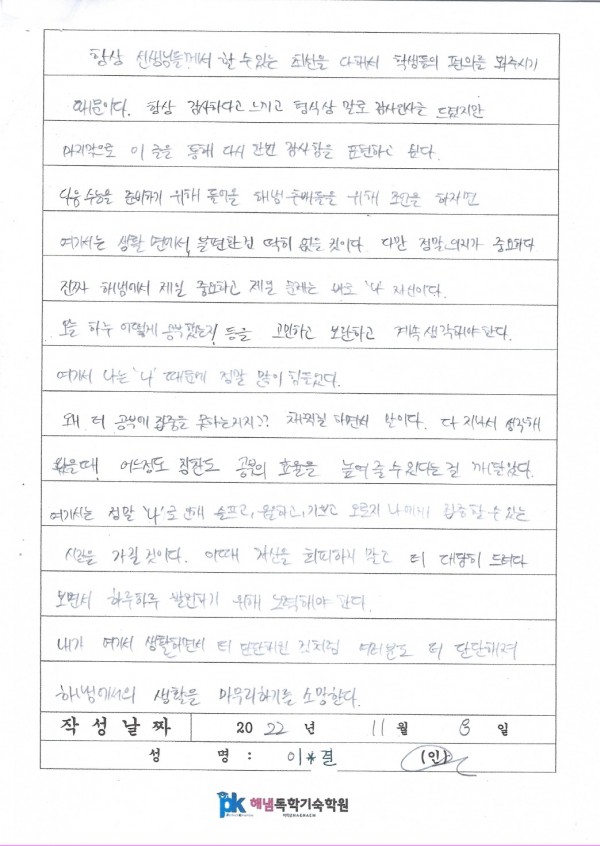 항상 선생님들께서 할 수 있는 최선을 다해서 학생들의 편의를 봐주시기
때문이다. 항상 감사하다고 느끼고 형식상 말로 감사인사를 드렸지만
마지막으로 이 글을 통해 다시 한번 감사함을 표현하고 싶다.
다음 수능을 준비하기 위해 들어올 해냄 후배들을 위해 조언을 하자면
여기서는 생활 면에서 불편한 건 딱히 없을 것이다. 다만 정말 의지가 중요하다
진짜 해냄에서 제일 중요하고 제일 문제는 바로 '나 자신이다.
오늘 하루 어떻게 공부했는지! 등을 고민하고 보완하고 계속 생각해야 한다.
여기서 나는 '나' 때문에 정말 많이 힘들었다.
왜 더 공부에 집중을 못하는거지?? 채찍질 하면서 말이다. 다 지나서 생각해
봤을때, 어느정도 공부의 효율을 높여 줄 수 있다는 걸 깨달았다.
여기서는 정말 '나'로 인해 슬프고, 기쁘고 오로지 나에게 집중할 수 있는
시간을 가질 것이다. 이때 자신을 회피하지 말고 더 대담히 드러다
보면서 하루하루 발전하기 위해 노력해야 한다.
내가 여기서 생활하면서 더 단단해진 것처럼 여러분도 더 단단해져
해냄에서의 생활을 마무리하기를 소망한다.
작성날짜 2022년 11월 8일
성 명 : 이*결 (인)
pk 해냄독학기숙학원